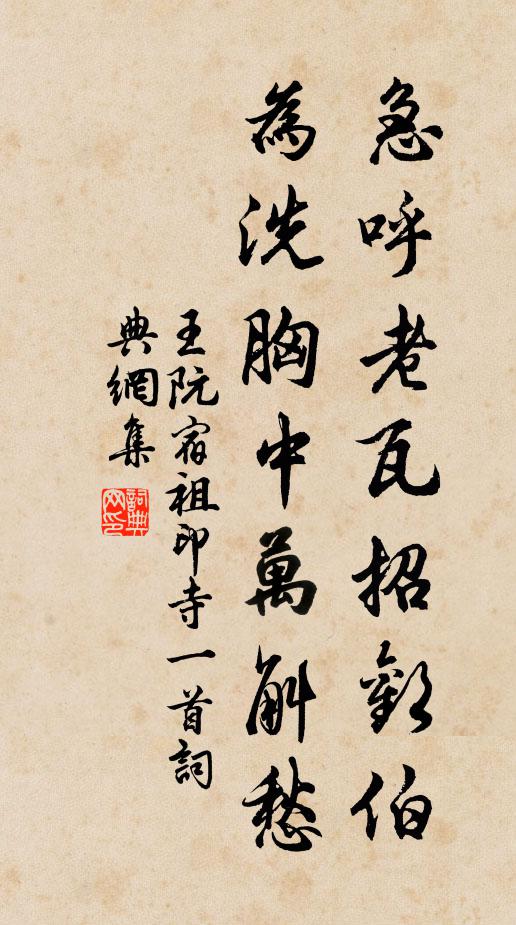 急呼老瓦招歡伯
為洗胸中萬斛愁
王阮宿祖印寺一首詞
典網集
詞典網印